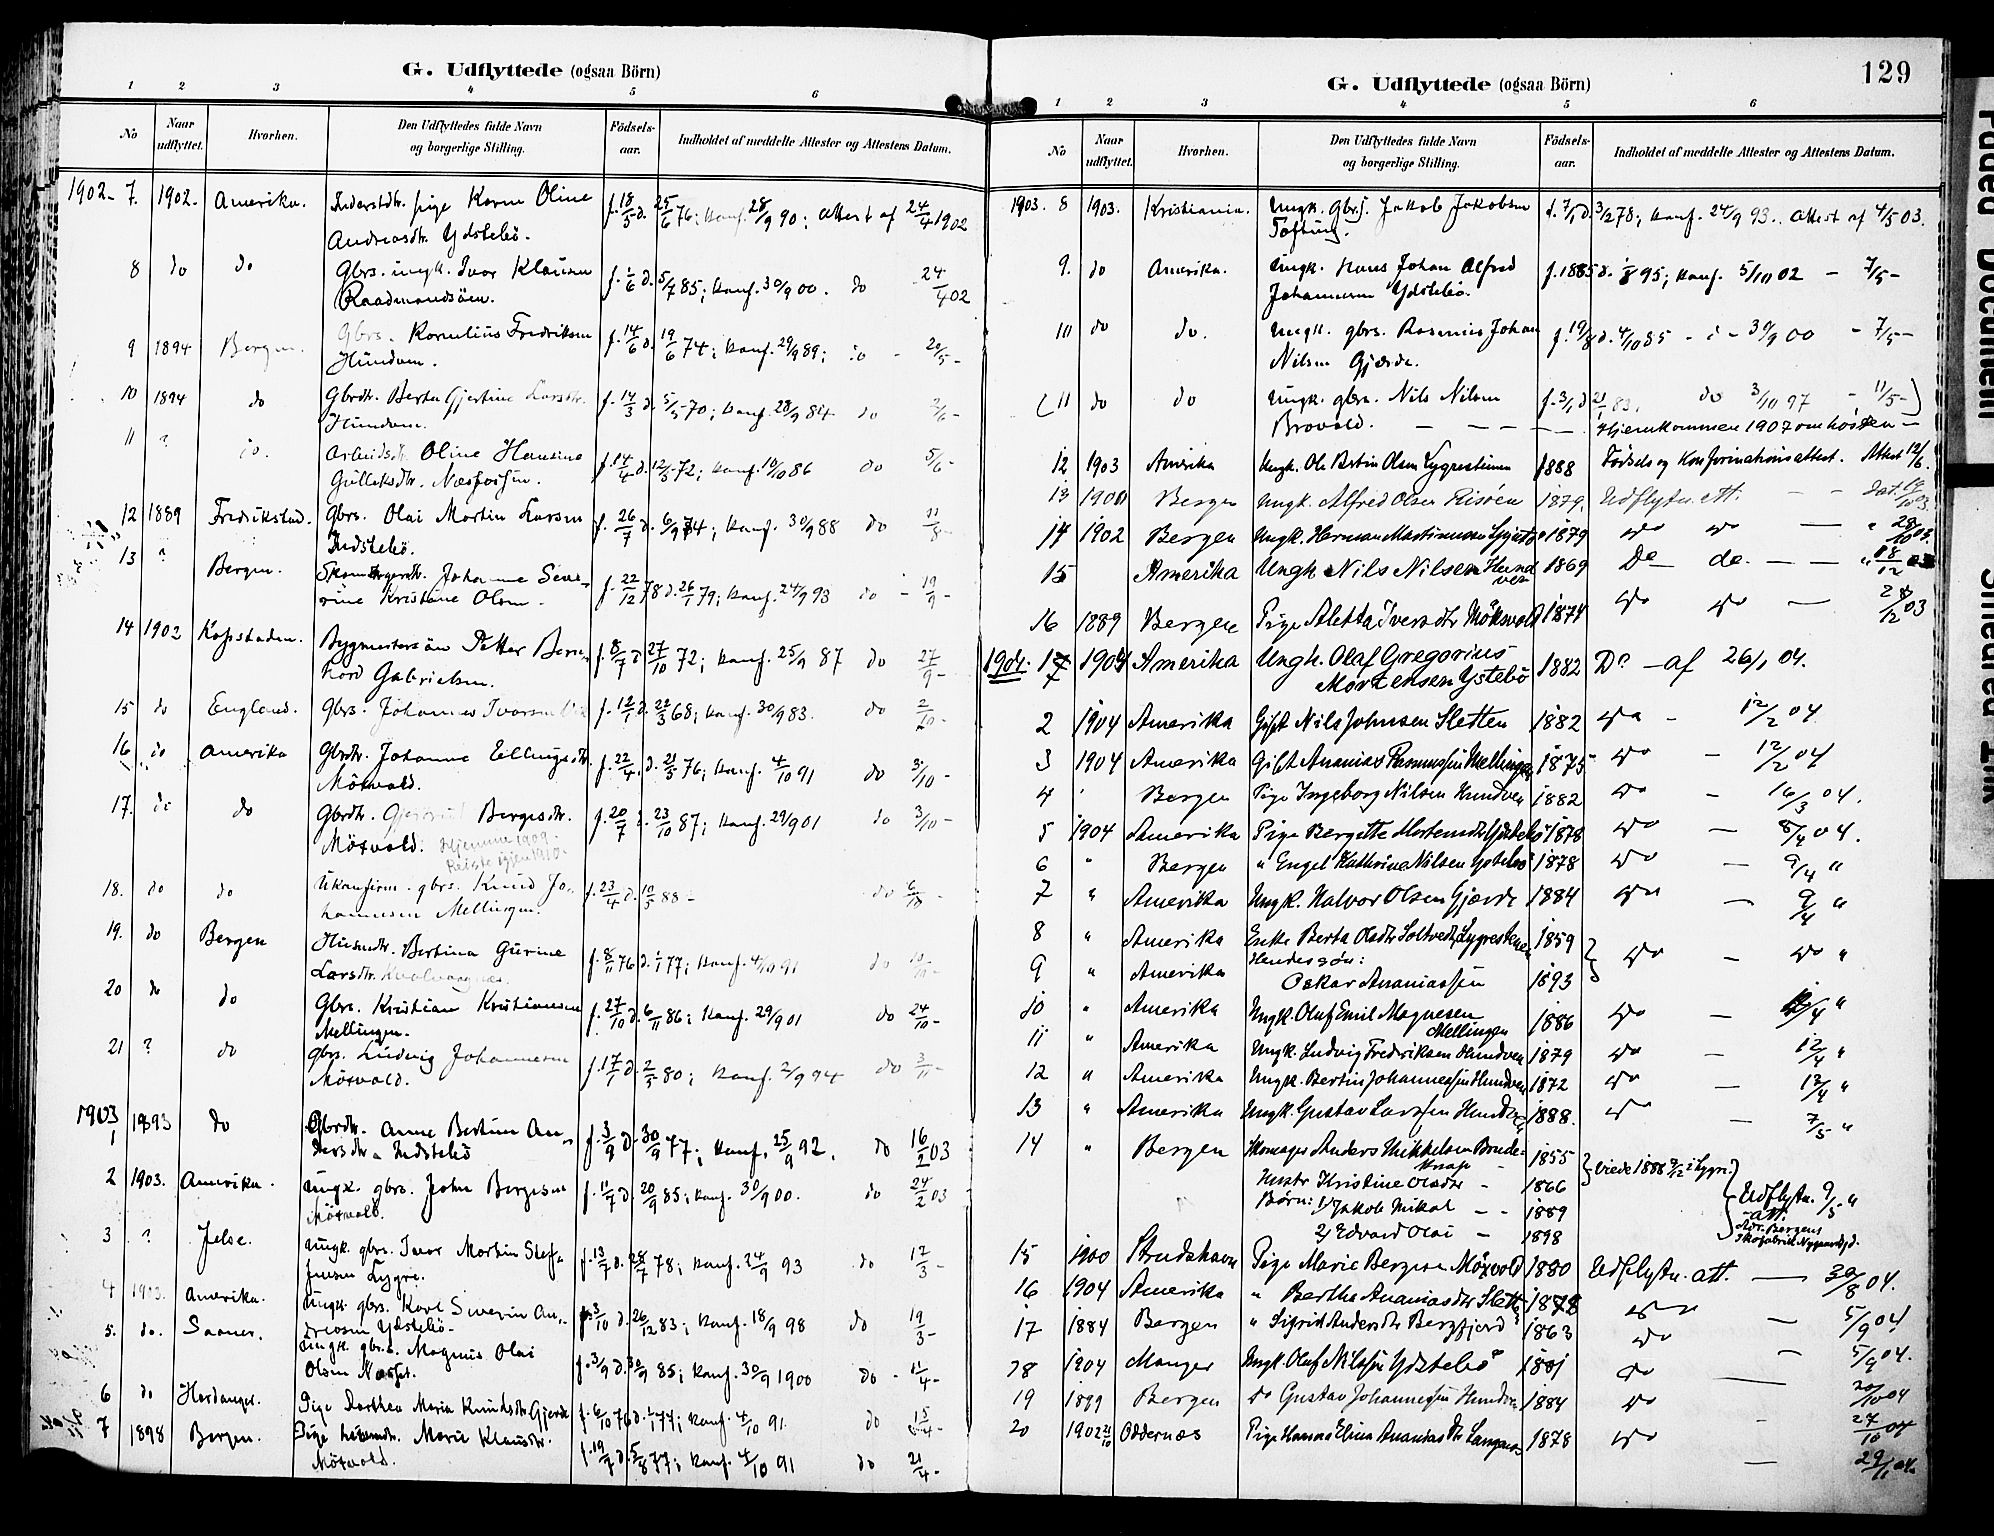 G. Udflyttede (ogsaa Börn)
1 2 3 4 5 6
No Naar udflyttet. Hvorhen. Den Udflyttedes fulde Navn og borgerlige Stilling. Födsels-aar. Indholdet af meddelte Attester og Attestens Datum.
1902- 7. 1902. Amerika. Inderstdtr. pige Karen Oline f. 18/5 d. 25/6 76; Konf. 28/9 90; Attest af 24/4 1902
Andreasdtr. Ydstebö.
8 do do Gbrs. ungk. Ivar Klausen f. 1/6 d. 5/7 85; Konf. 30/9 00. do 24/4 02
Raadmandsöen.
9 1894 Bergen. Gbrs. Kornelius Fredriksen f. 14/6 d. 19/6 74; Konf. 29/9 89; do - 20/5 -
Hundven.
10 1894 do Gbrdtr. Berta Gjertine Larsdtr. f. 14/3 d. 5/5 70; Konf. 28/9 84 do 2/6 -
Hundven.
11 ? do. Arbeidsdtr. Oline Hansine f. 14/4 d. 12/5 72; Konf. 10/10 86 do 5/6 -
Gulleksdtr. Næsfossen.
12 1889 Fredrikstad. Gbrs. Olai Martin Larsen f. 26/7 d. 6/9 74; Konf. 30/9 88 do 11/8 -
Indstebö.
13 ? Bergen. Johanne Seve- f. 22/12 78 d. 26/1 79; Konf. 24/9 93 do - 19/9 -
rine Kristane Olsen.
14 1902 Kapstaden. Bygmestersön Petter Bern- f. 8/7 d. 27/10 72; Konf. 25/9 87 do 27/9 -
hard Gabrielsen.
15 do England. Gbrs. Johannes Ivarsen f. 12/1 d. 22/3 68; Konf. 30/9 83. do 2/10 -
16 do Amerika Gbrdtr. Johanna Ellingsdtr. f. 22/4 d. 21/5 76; Konf. 4/10 91 do 3/10 -
Möxvold.
17. do do Gbrdtr. Bergesdtr. f. 20/7 d. 23/10 87; Konf. 29/9 01 do 3/10 -
Möxvold. Hjemme 1909.
Reiste igjen 1910.
18. do do Ukonfirm. gbrs. Knud Jo- f. 23/4 d. 10/5 88 - do 6/10 -
hannesen Mellingen.
19. do Bergen Husmdtr. Bertina Gurine f. 8/11 76 d. 1/1 77; Konf. 4/10 91 do 10/11 -
Larsdtr. Kvalvaagnes.
20 do do Gbrs. Kristian Kristiansen f. 27/10 d. 6/11 86; Konf. 29/9 01 do 24/10 -
Mellingen.
21 ? do gbrs. Ludvig Johannesen f. 17/1 d. 2/5 80; Konf. 2/9 94 do 3/11 -
Möxvold.
1903
1 1893 do Gbrdtr. Anne Bertine An- f. 3/9 d. 30/9 77; Konf. 25/9 92. do 16/2 03
dersdtr. Indstebö
2 1903. Amerika. ungk. gbrs. John Bergesen f. 11/7 d. 20/9 85; Konf. 30/9 00. do 24/2 03
Möxvold.
3 ? Jelse. ungk. gbrs. Ivar Martin Stef- f. 13/7 d. 28/7 78; Konf. 24/9 93 do 17/3 -
fensen Lygre.
4 1903. Amerika. ungk. gbrs. Karl Severin An- f. 3/10 d. 26/12 83; Konf. 18/9 98 do 19/3 -
dreasen Ydstebö.
5. do. ungk. gbrs. Magnus Olai f. 3/9 d. 30/9 85; Konf. 30/9 1900 do - 11/4 -
Olsen
6 do Hardanger. Pige Dorthea Maria Knudsdtr. Gjerde f. 6/10 76 d. 1/1 77; Konf. 4/10 91. do 15/4 -
7 1898 Bergen. Pige Marie Klausdtr. f. 19/7 d. 5/8 77; Konf. 4/10 91 do 21/4 -
Möxvold.
G. Udflyttede (ogsaa Börn)
129
1 2 3 4 5 6
No Naar udflyttet. Hvorhen. Den Udflyttedes fulde Navn og borgerlige Stilling. Födsels-aar. Indholdet af meddelte Attester og Attestens Datum.
1903. 8 1903. Kristiania. Ungk. gbrs. Jakob Jakobsen f. 7/1 d. 3/2 78; Konf. 24/9 93. Attest af 4/5 03.
Toftung.
9. do Amerika. Ungk. Hans Johan Alfred f. 1885 d. 95; Konf. 5/10 02 - 7/5 -
Johannesen Ydstebö.
10 do do. Ungk. gbrs. Rasmus Johan f. 19/8 d. 4/10 85 - " - 30/9 00 - 7/5 -
Nilsen Gjerde.
(11 do do Ungk. gbrs. Nils Nilsen f. 3/1 d. 21/1 83. do 3/10 97 - 11/5 -)
Brovold. - - - - Hjemkommen 1907 om hösten -
12 1903 Amerika Ungk. Ole Bertin Olsen Lygrestunen 1888 Födsels og Konfirmationsattest. Attest 12/6.
13 1901 Bergen Ungk. Alfred Olsen 1879. Udflytn. att. - - Dat.
14 1902 Bergen Ungk. Herman Martinusen 1879 do do - " 28/10 03.
15 Amerika Ungk. Nils Nilsen Hundven 1869 Do do. - - " 18/12 03
16 1889 Bergen Pige Aletta Iversdtr Möksvold 1874 do do - 28/12 03
1904. 1 1904 Amerika Ungk. Olaf Gregorius 1882 Do - af 26/1 04.
Mortensen Ystebö
2 1904 Amerika Gift Nils Johnsen Sletten 1882 do - 12/2 04.
3 1904 Amerika Gift Ananias Rasmussen Mellingen 1875 do - 12/2 04
4 ' Bergen Pige Ingeborg Nilsen Hundven 1882 do - 16/3 04.
5 1904 Amerika Pige Bergitte Mortensdtr Ydstebö 1878 do - 8/4 04.
6 " Bergen " Engel Kathrine Nilsen Ystebö 1878 do - 9/4 "
7 " Amerika Ungk. Halvor Olsen Gjærde 1884 do - 9/4 "
8 " Amerika Enke Berta Olsdtr Soltvedt, Lygrestunen 1859 } do - do "
Hendes sön:
9 " Amerika Oskar Ananiassen 1893
10 " Amerika Ungk. Oluf Emil Magnesen 1886 do - 12/4 "
Mellingen
11 " Amerika Ungk. Ludvig Fredriksen Hundven 1879 do - 12/4 "
12 " Amerika Ungk. Bertin Johannessen Hundven 1872 do - 12/4 "
13 " Amerika Ungk. Gustav Larssen Hundven 1888. do - 7/5 "
14 " Bergen Skomager Anders Mikkelsen Brude- 1855 } viede 1888 i Lygre.
knap
Hustr. Kristine Olsdtr - 1866
Börn: 1/ Jakob Mikal - - 1889 Udflytn. 9/5 "
- att.
2/ Edvard Olai - 1898 Adr. Bergens
Skofabrik Nygaard
15 1900 Strudshavn Pige Marie Bergesen Möxvold 1880 Udflytn. att. - 30/8 04.
16 1904 Amerika " Bertha Ananiasdtr Slette 1878 do - 5/9 04
17 1884 Bergen " Sigrid Andersdtr Bergfjord 1863 do - 5/9 04.
18 1904 Manger Ungk. Oluf Nilssen Ydstebö 1881 do - 20/10 04
19 1899 Bergen do Gustav Johannessen Hundven 1884 do - 24/10 04
20 1902 21/10 Oddernæs Pige Hanna Elina Ananiasdtr 1878 do - 29/11 04.